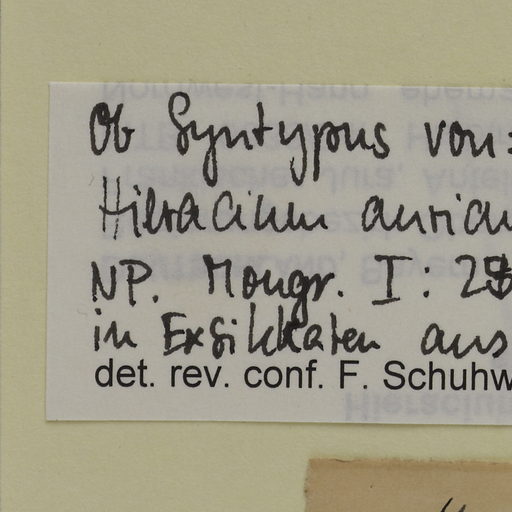 Ob Syntypus von:
Hieracium
NP. Monogr. I: 25
in Exsikkaten aus
det. rev. conf. F. Schuhw